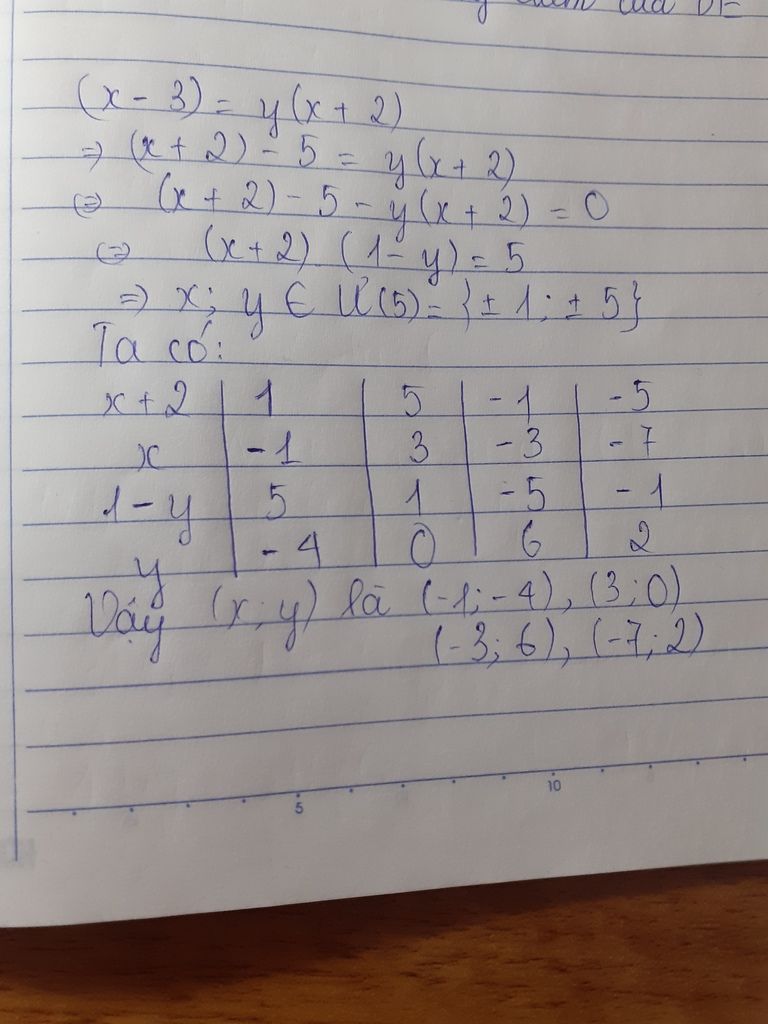 của
(x - 3) = y(x + 2)
=> (x + 2) - 5 = y(x + 2)
<=> (x + 2) - 5 - y(x + 2) = 0
<=> (x+2) (1 - y) = 5
=> x; y ∈ Ư(5) = {± 1; ± 5}
Ta có:
x + 2 | 1 | 5 | -1 | -5
x | -1 | 3 | -3 | -7
1 - y | 5 | 1 | -5 | -1
y | -4 | 0 | 6 | 2
Vậy (x; y) là (-1; -4), (3; 0)
(-3; 6), (-7; 2)
5 10